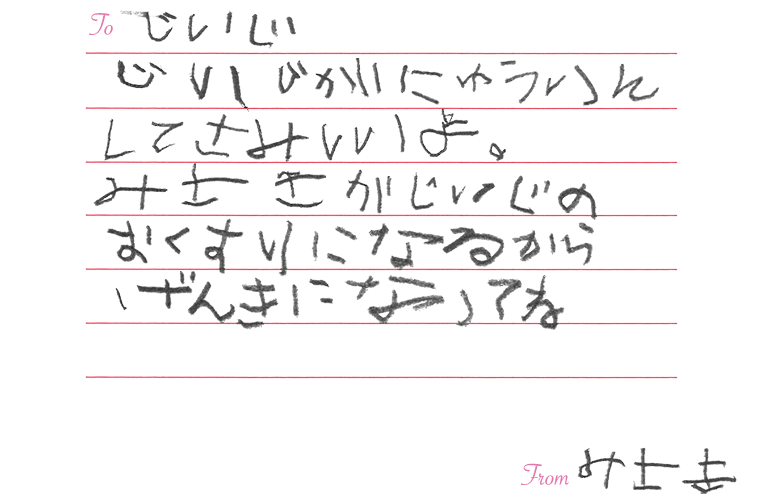 To じいじ
じいじがにゅういん
してさみいいよ。
みささがじいじの
おくすりになるから
げんきになってね
From みさき